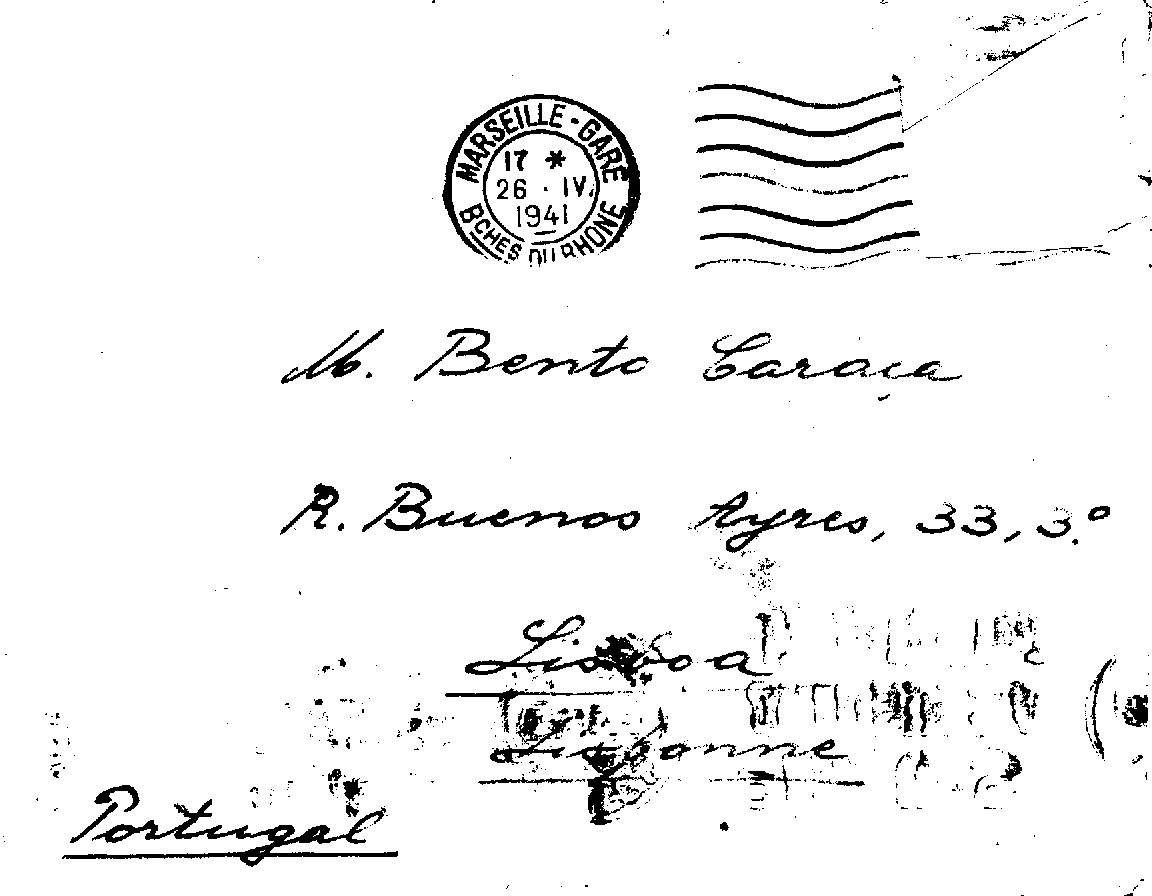 MARSEILLE-GARE
17 *
26 · IV.
1941
BCHES DU RHONE
M. Bento Caraça
R. Buenos Ayres, 33, 3.º
Lisboa
Lisbonne
Portugal